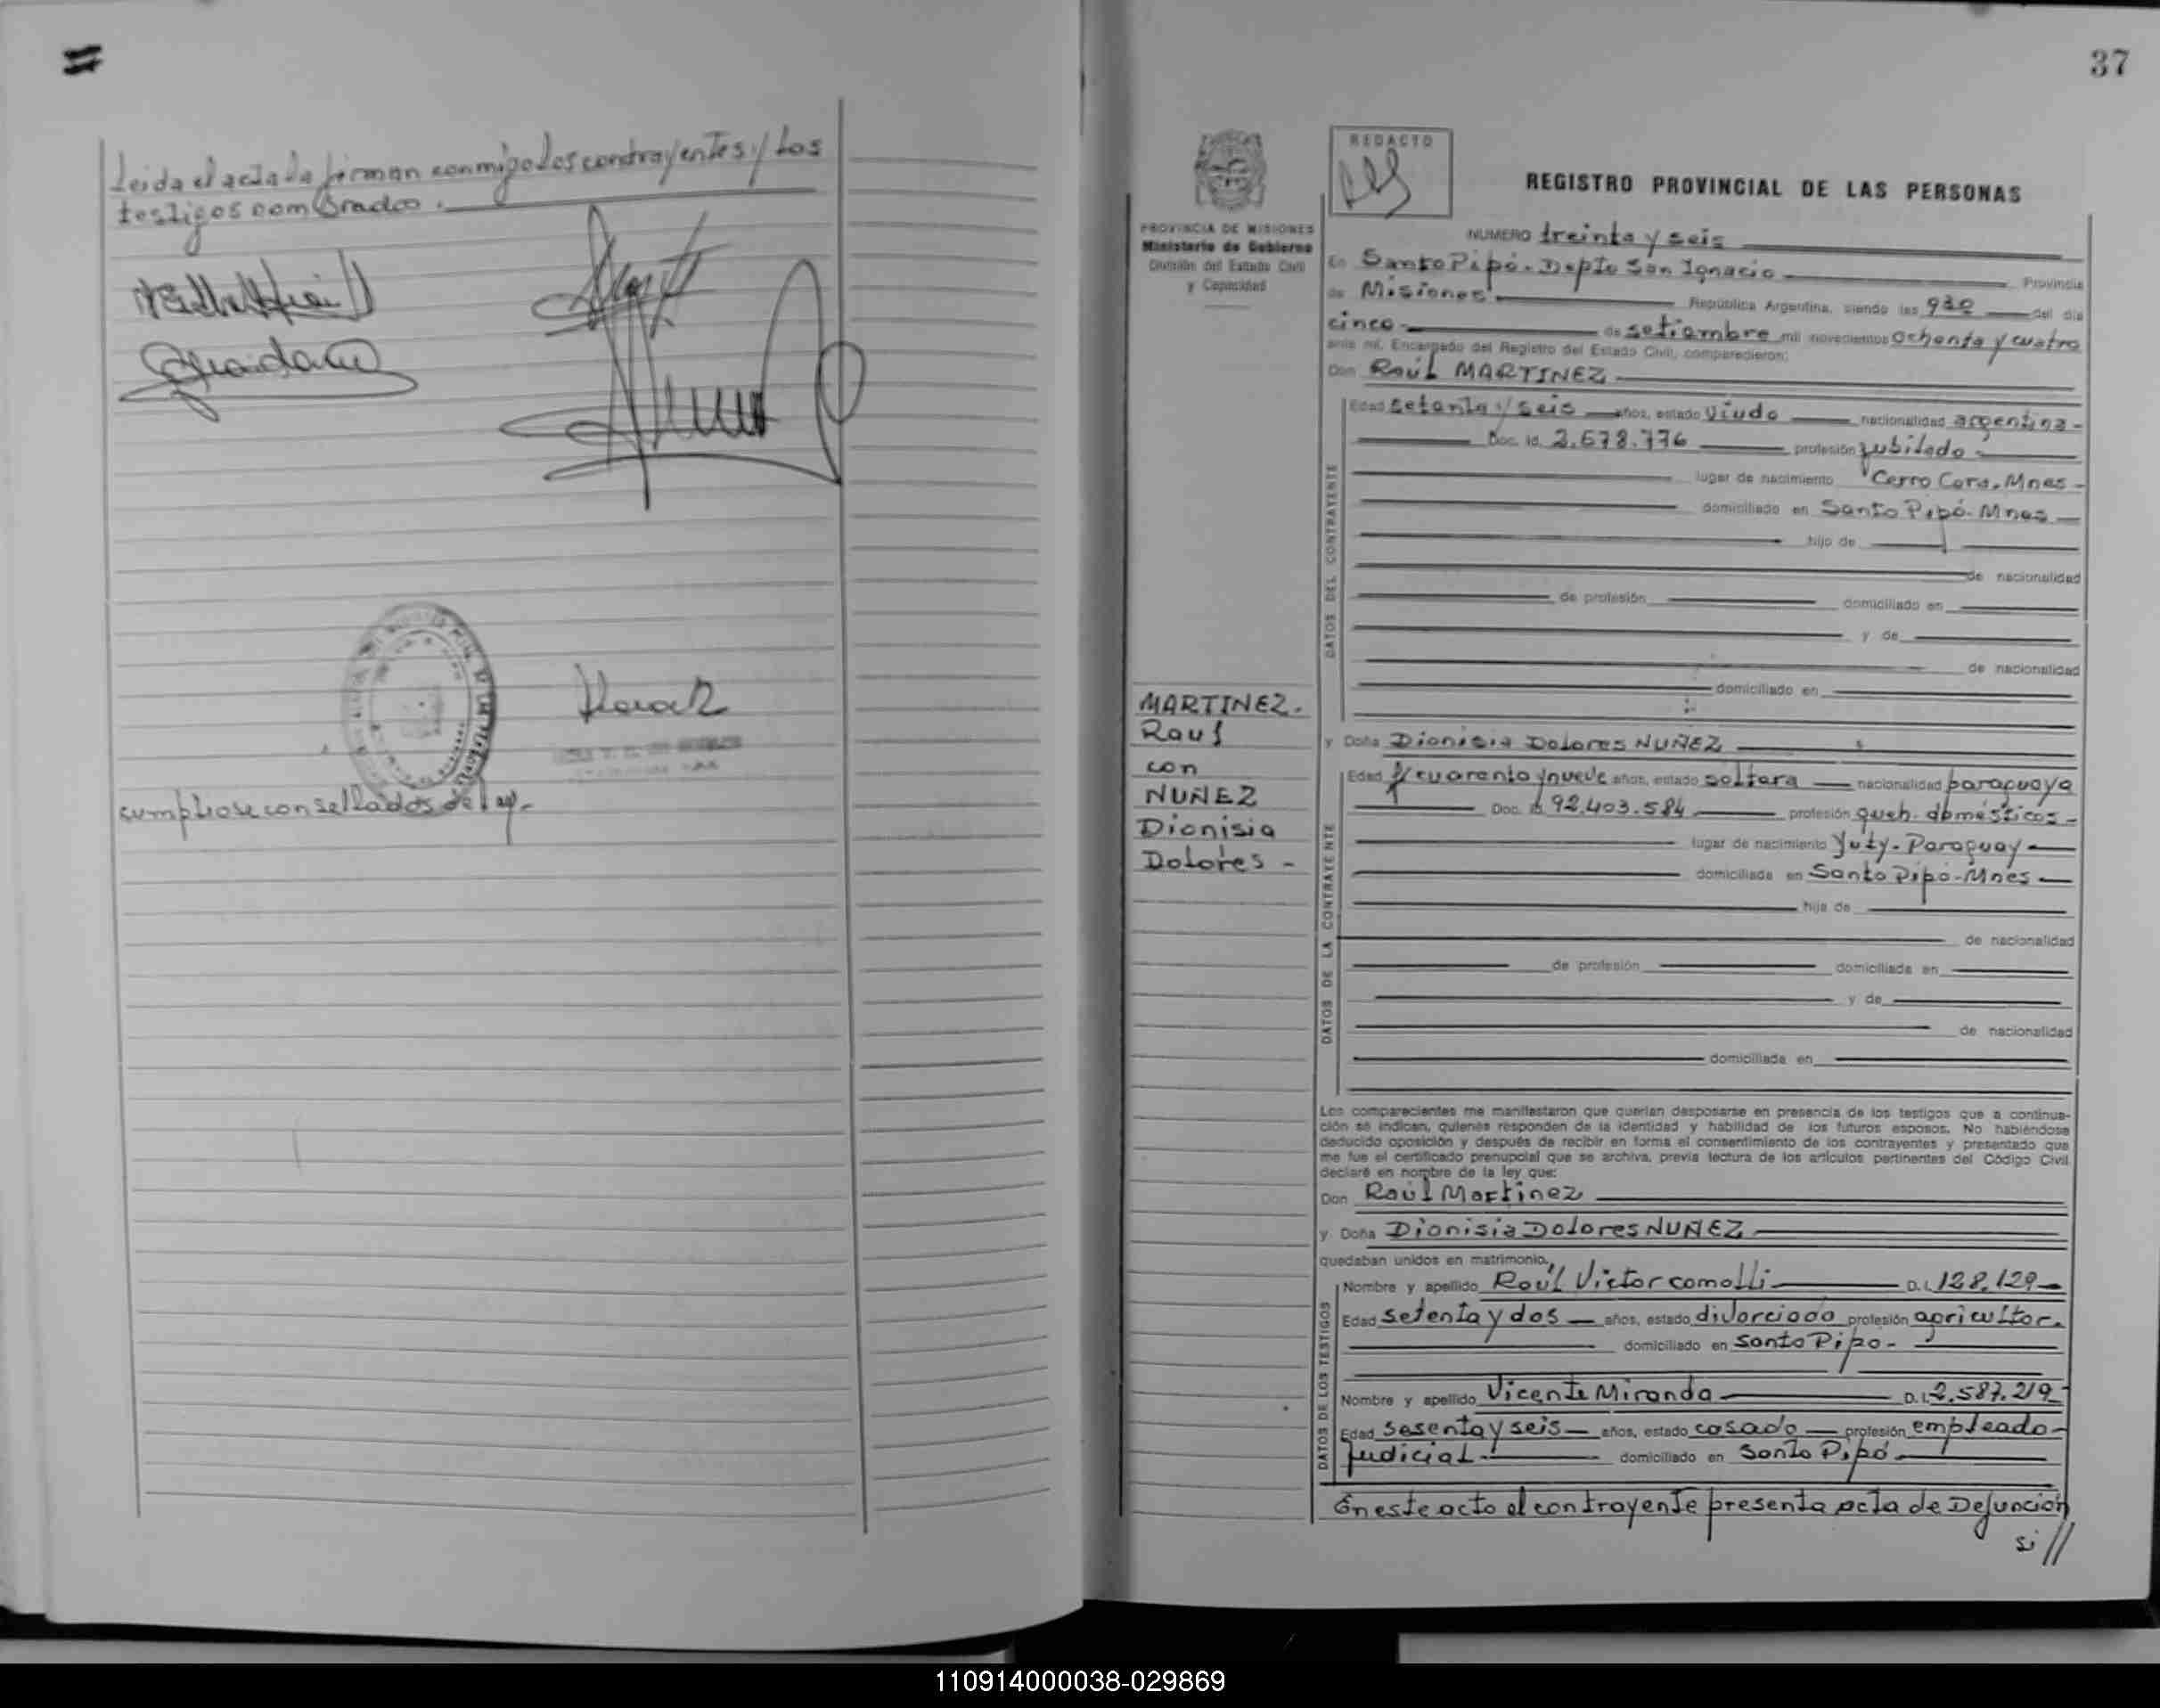 Leida el acta la firman conmigo los contrayentes y los
testigos nombrados.
cumpliose con sellados de ley.-
37
REDACTO
REGISTRO PROVINCIAL DE LAS PERSONAS
PROVINCIA DE MISIONES
Ministerio de Gobierno
División del Estado Civil
y Capacidad
NUMERO treinta y seis
En Santo Pipó - Depto San Ignacio - Provincia
de Misiones República Argentina, siendo las 930 del día
cinco - de setiembre mil novecientos ochenta y cuatro
ante mí, Encargado del Registro del Estado Civil, comparecieron:
Don Raúl MARTINEZ
DATOS DEL CONTRAYENTE
Edad setenta y seis años, estado viudo nacionalidad argentina -
Doc. Id. 2.678.776 profesión jubilado -
lugar de nacimiento Cerro Cora. Mnes -
domiciliado en Santo Pipó. Mnes
hijo de
de nacionalidad
de profesión domiciliado en
y de
de nacionalidad
domiciliado en
MARTINEZ.
Raul
con
NUÑEZ
Dionisia
Dolores -
y Doña Dionisia Dolores NUÑEZ
DATOS DE LA CONTRAYENTE
Edad cuarenta y nueve años, estado soltera nacionalidad paraguaya
Doc. Id 92.403.584 profesión queh. domésticos -
lugar de nacimiento Yuty - Paraguay
domiciliada en Santo Pipó - Mnes
hija de
de nacionalidad
de profesión domiciliada en
y de
de nacionalidad
domiciliada en
Los comparecientes me manifestaron que querían desposarse en presencia de los testigos que a continua-
ción se indican, quienes responden de la identidad y habilidad de los futuros esposos. No habiéndose
deducido oposición y después de recibir en forma el consentimiento de los contrayentes y presentado que
me fue el certificado prenupcial que se archiva, previa lectura de los artículos pertinentes del Código Civil
declaré en nombre de la ley que:
Don Raúl Martinez
y Doña Dionisia Dolores NUÑEZ
quedaban unidos en matrimonio.
DATOS DE LOS TESTIGOS
Nombre y apellido Raúl Victor comolli D.I. 128.129
Edad setenta y dos años, estado divorciado profesión agricultor.
domiciliado en Santo Pipo -
Nombre y apellido Vicente Miranda D.I. 2.587.219
Edad sesenta y seis años, estado casado profesión empleado
judicial domiciliado en Santo Pipó
En este acto el contrayente presenta acta de Defunción
si //
110914000038-029869